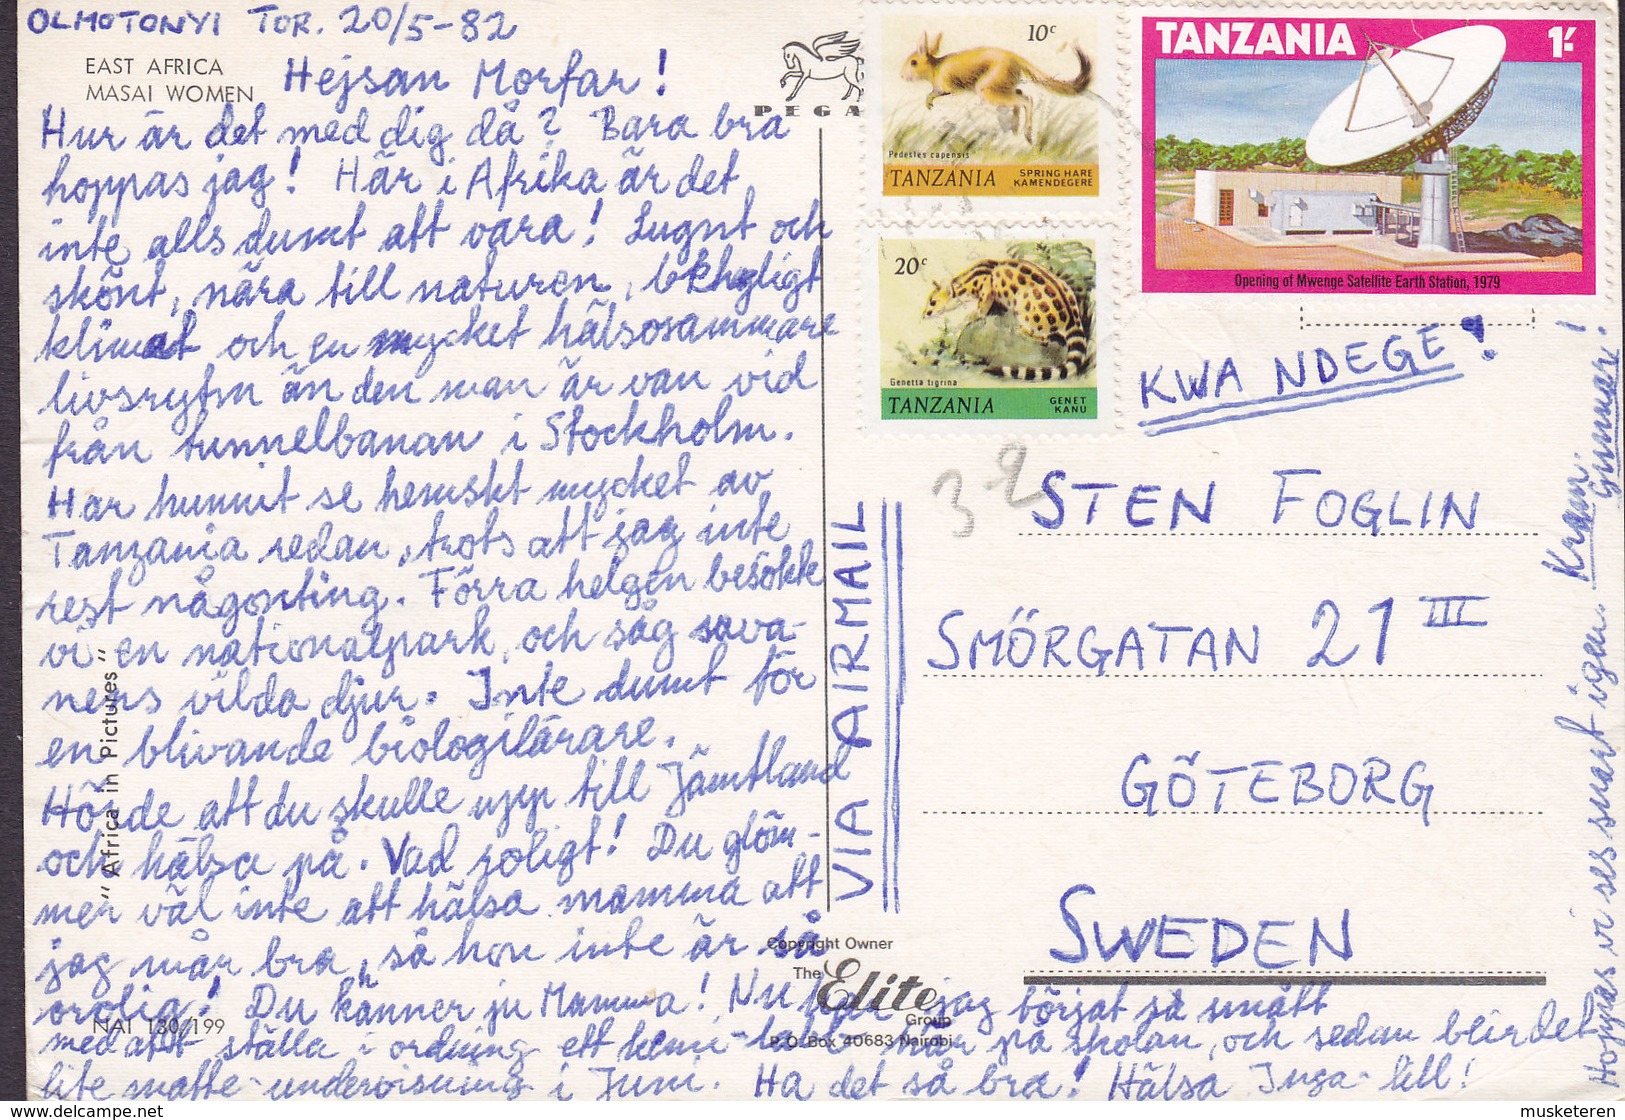 OLMOTONYI TOR. 20/5-82
EAST AFRICA
MASAI WOMEN
Hejsan Morfar!
Hur är det med dig då? Bara bra
hoppas jag! Här i Afrika är det
inte alls dumt att vara! Lugnt och
skönt, nära till naturen, behagligt
klimat och en mycket hälsosammare
livsrytm än den man är van vid
från tunnelbanan i Stockholm.
Har hunnit se hemskt mycket av
Tanzania redan, trots att jag inte
rest någonting. Förra helgen besökte
vi en nationalpark, och såg sava-
nens vilda djur. Inte dumt för
en blivande biologilärare.
Hörde att du skulle upp till Jämtland
och hälsa på. Vad roligt! Du glöm-
mer väl inte att hälsa mamma att
jag mår bra, så hon inte är så
orolig! Du känner ju Mamma! Nu har jag börjat så smått
med att ställa i ordning ett kemi-labb här på skolan, och sedan blir det
lite matte-undervisning i Juni. Ha det så bra! Hälsa Inga-lill!
Hoppas vi ses snart igen. Kram.
Gunnar!
"Africa in Pictures"
NAI 130/199
PEGA
VIA AIRMAIL
Copyright Owner
The Elite
Group
P.O. Box 40683 Nairobi
10c
Pedestes capensis
TANZANIA
SPRING HARE
KAMENDEGERE
20c
Genetta tigrina
TANZANIA
GENET
KANU
TANZANIA 1/-
Opening of Mwenge Satellite Earth Station, 1979
KWA NDEGE!
39
STEN FOGLIN
SMÖRGATAN 21 III
GÖTEBORG
SWEDEN
delcampe.net
musketeren